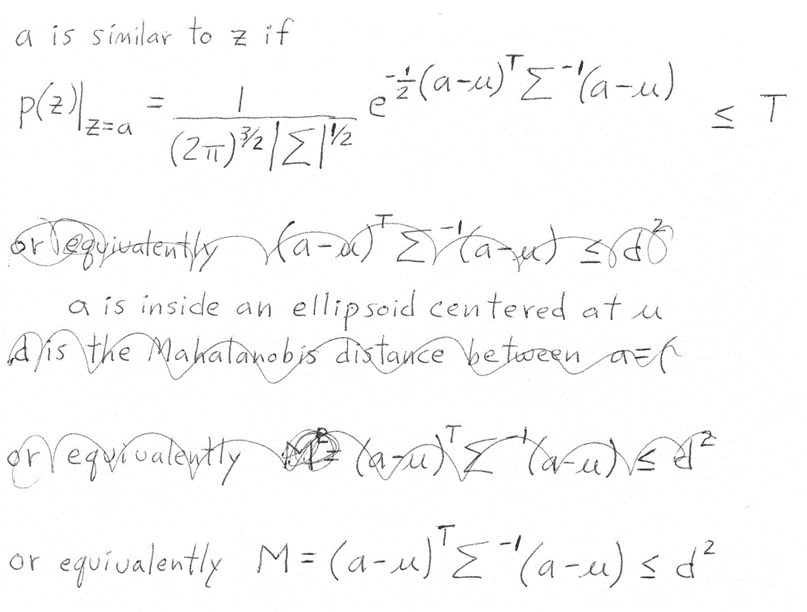 a is similar to z if
p(z)|_{z=a} = \frac{1}{(2π)^{3/2}|Σ|^{1/2}} e^{-\frac{1}{2}(a-μ)^T Σ^{-1}(a-μ)} ≤ T
or equivalently (a-μ)^T Σ^{-1}(a-μ) ≤ d^2
a is inside an ellipsoid centered at μ
d is the Mahalanobis distance between a=(
or equivalently M^2= (a-μ)^T Σ^{-1}(a-μ) ≤ d^2
or equivalently M = (a-μ)^T Σ^{-1}(a-μ) ≤ d^2